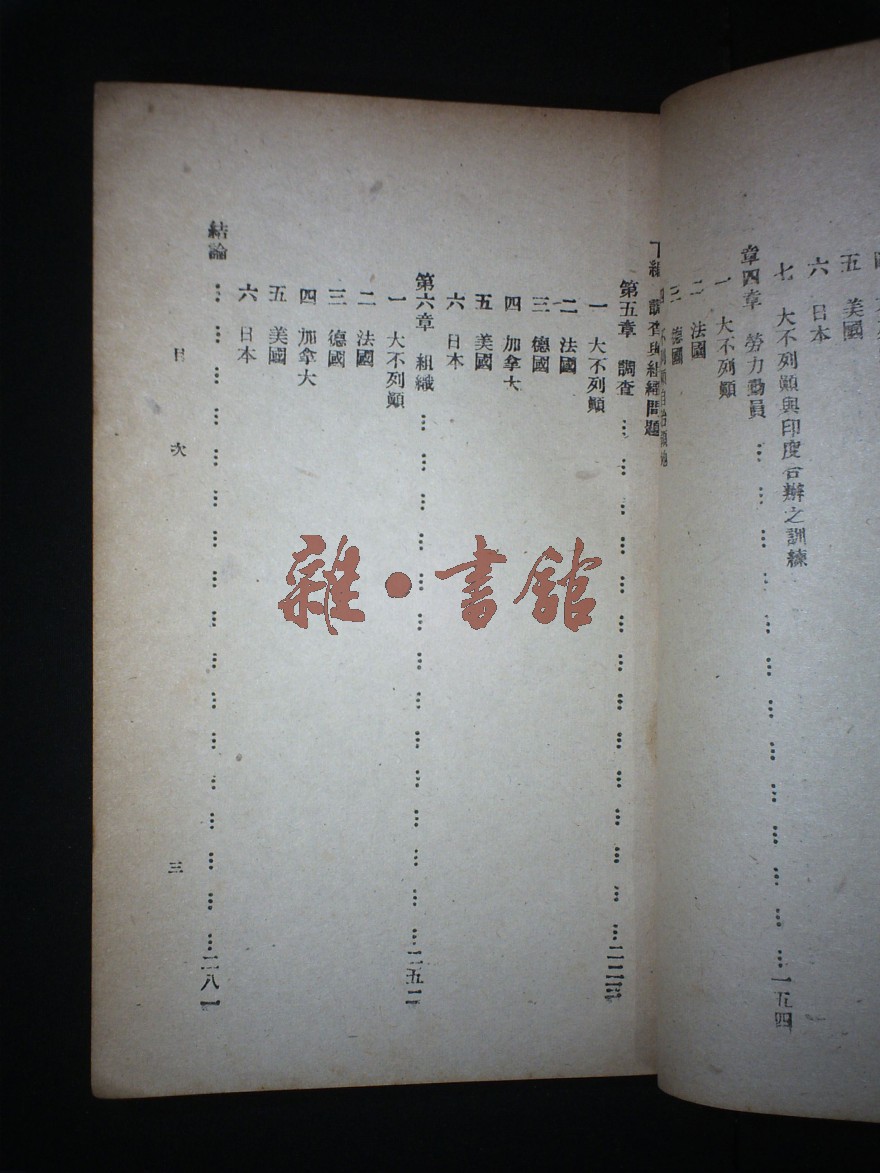 五　美國
六　日本
七　大不列顛與印度合辦之訓練
章四章　勞力動員……一五四
一　大不列顛
二　法國
三　德國
調查與組織問題
第五章　調查……二二三
一　大不列顛
二　法國
三　德國
四　加拿大
五　美國
六　日本
第六章　組織……二五二
一　大不列顛
二　法國
三　德國
四　加拿大
五　美國
六　日本
結論……二八一
目次　三
雜·書館